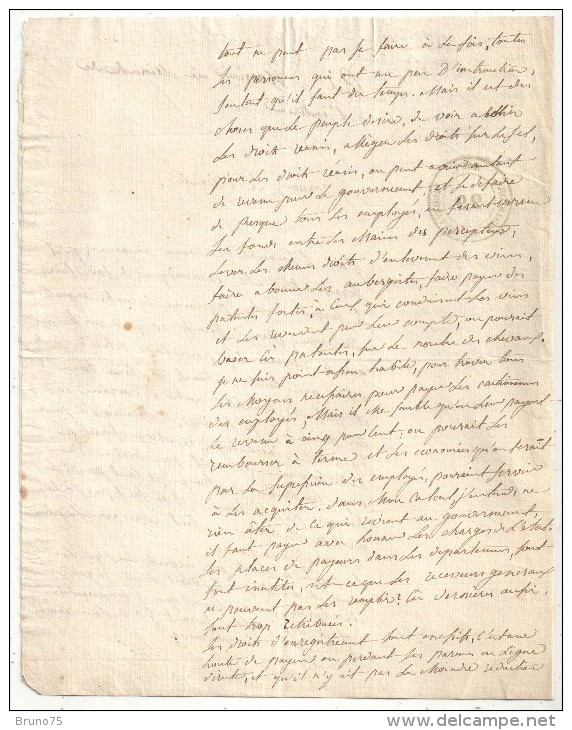 tout ne peut pas se faire à la fois, toutes
les personnes qui ont un peu d'instruction,
sentent qu'il faut du temps. Mais il est des
choses que le peuple desire, de voir abolir
les droits reunis, alléger les droits sur le sel,
pour les droits réunis, on peut avoir autant
de revenu pour le gouvernement, et se defaire
de presque tous les employés, en fesant verser
les fonds entre les Mains des percepteurs,
lever les memes droits d'enlevement des vins,
faire abonner les aubergistes, faire payer des
patentes fortes, à ceux qui conduisent les vins
et les revendent pour leur compte, on pourrait
baser ces patentes, sur le nombre des chevaux.
je ne suis point assez habile, pour trouver tous
les Moyens necessaires pour payer les cautionnemens
des employés, Mais il Me semble qu'en leur payant
le revenu à cinq pour cent, on pourrait les
rembourser à terme et les economies qu'on ferait
par la supression des employés, pouraient servir
à les acquiter. dans Mon calcul, j'entends, ne
rien ôter de ce qui revient au gouvernement,
il faut payer avec honneur les charges de l'état.
les places de payeurs dans les departemens, sont
fort inutiles, est ce que les receveurs generaux
ne pouraient pas les remplir? Ces dernières aussi,
sont trop retribuées.
les droits d'enregistrement sont excessifs, c'est une
honte de payer en perdant ses parens en Ligne
directe, et qu'il n'y ait pas la Moindre reduction
Bruno75
www.delcampe.net